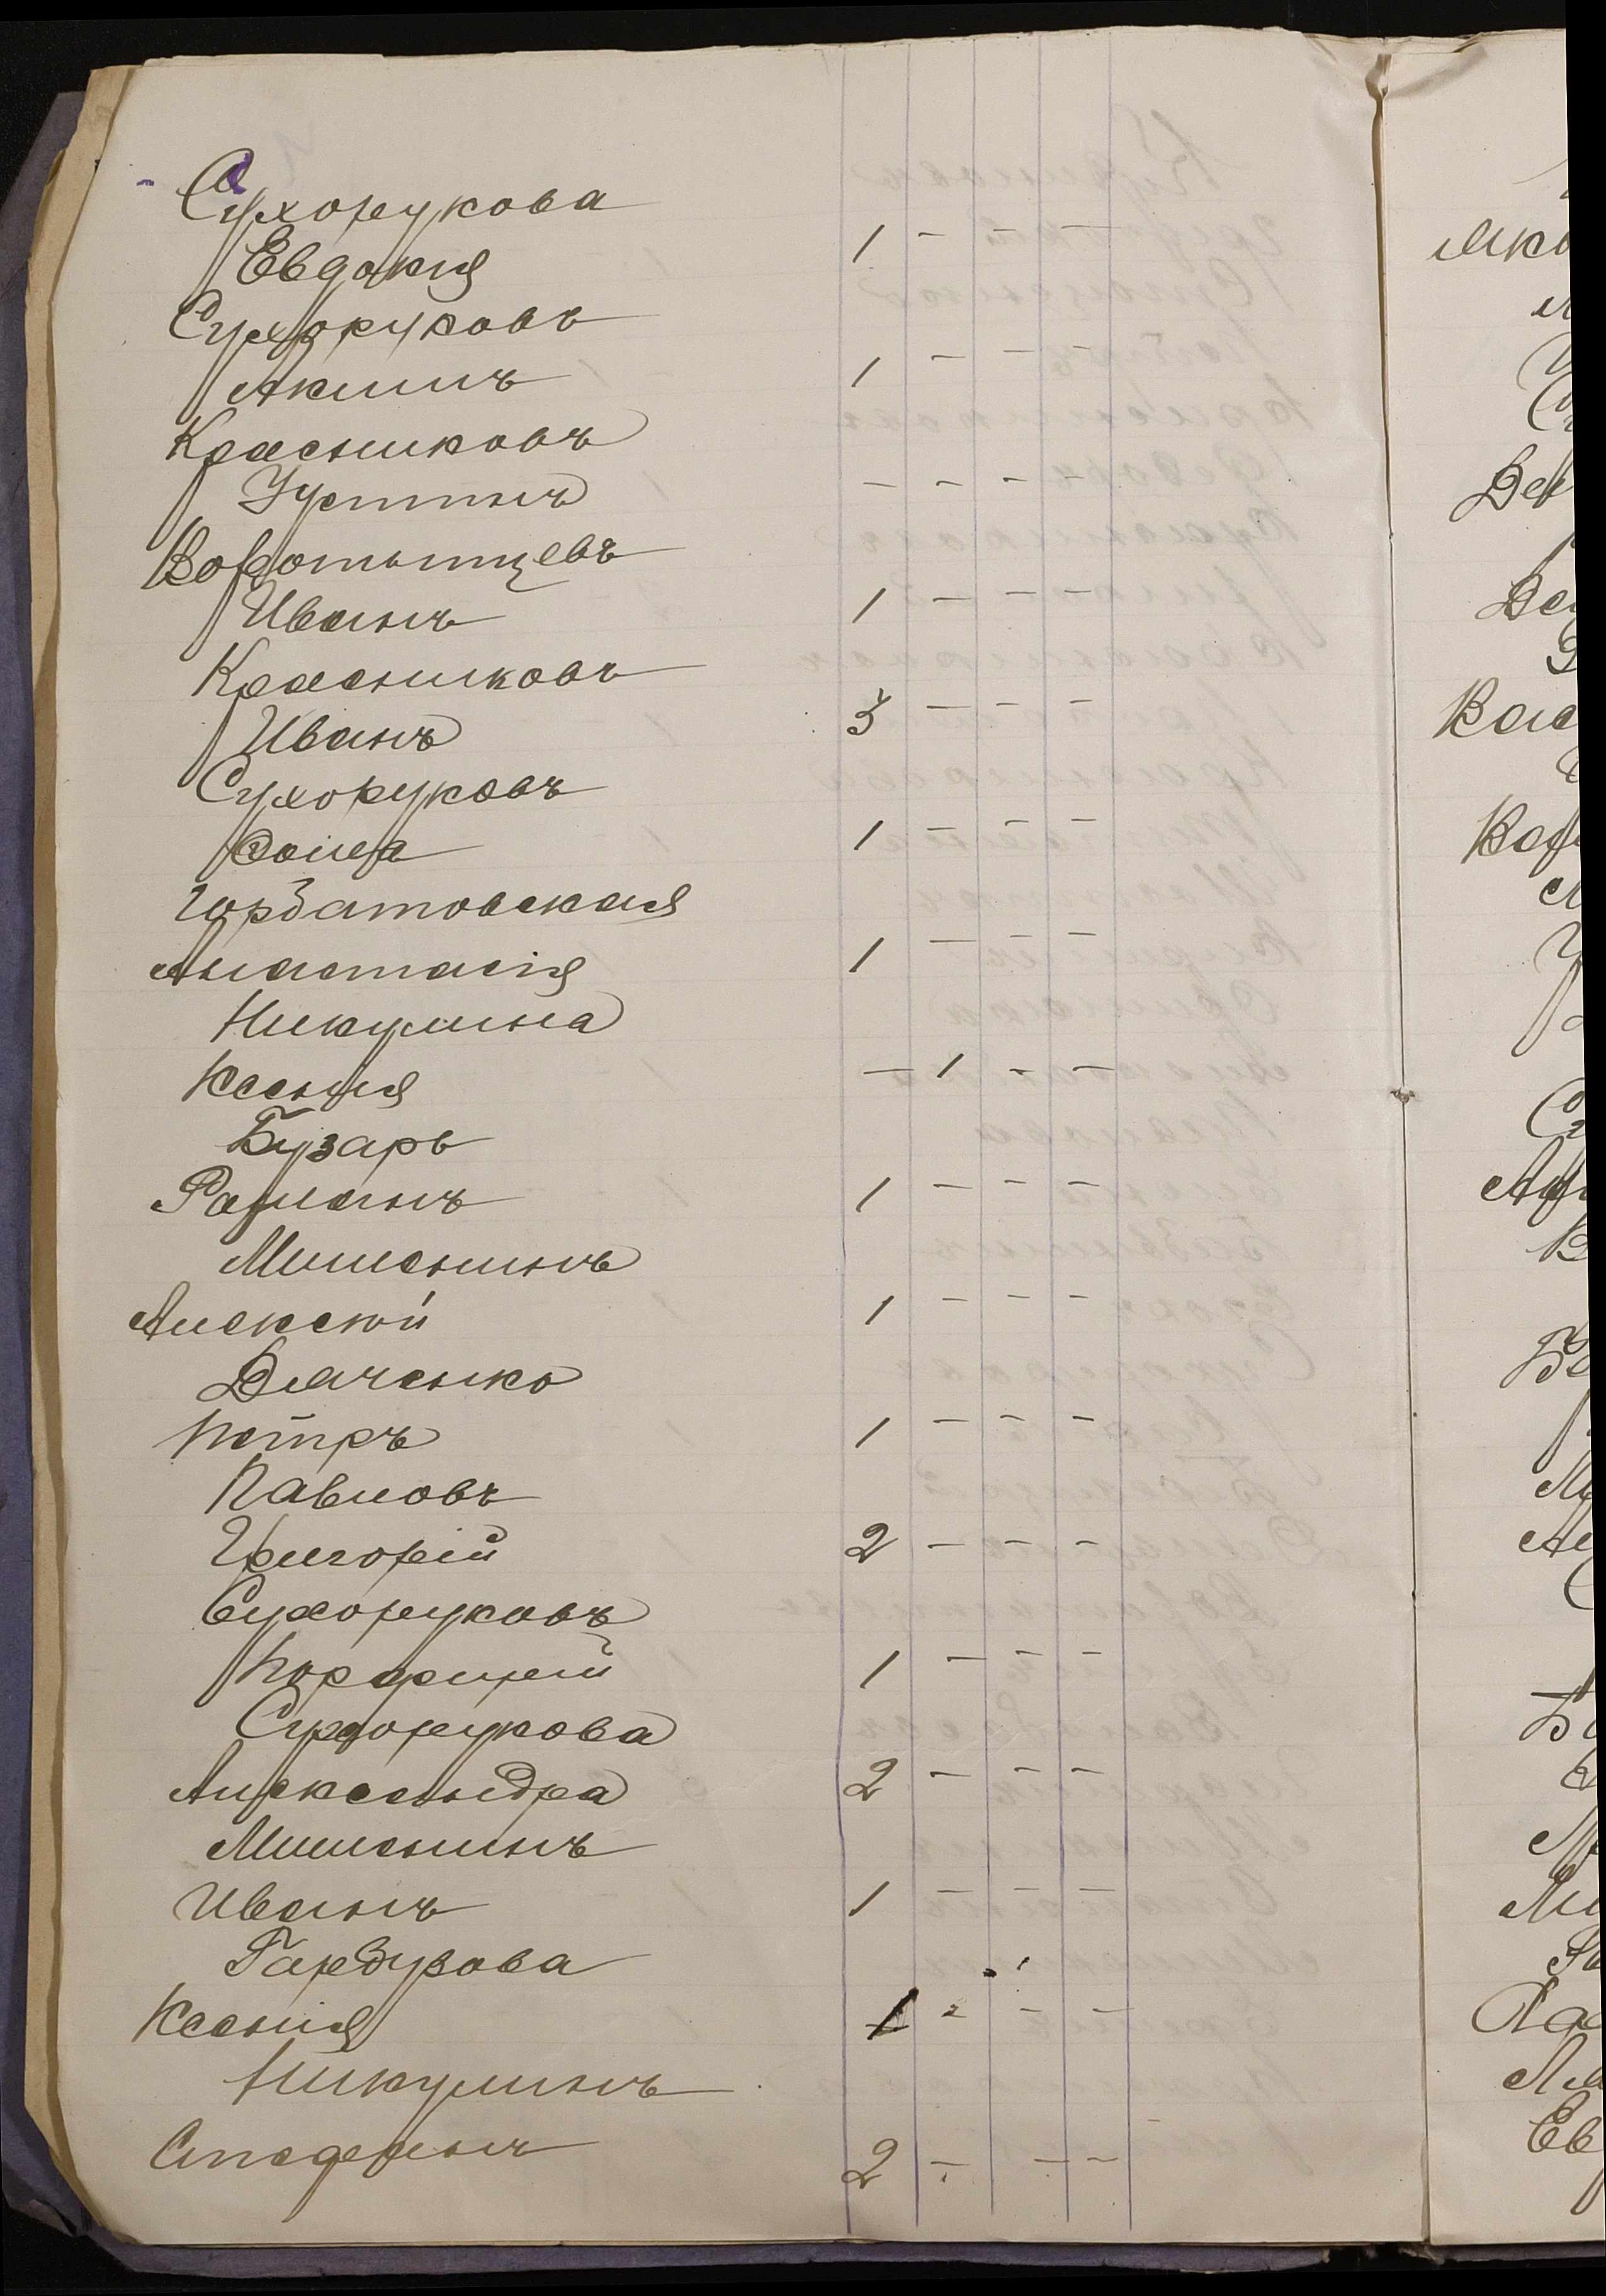 Сухорукова
Евдокия 1 - - -
Сухоруковъ
Акимъ 1 - - -
Красниковъ
Устинъ - - - -
Воротынцевъ
Иванъ 1 - - -
Красниковъ
Иванъ 3 - - -
Сухоруковъ
Фома 1 - - -
Горбатовская
Анастасія 1 - - -
Никулина
Ксенія - 1 - -
Бузарь
Романъ 1 - - -
Мишенинъ
Алексѣй 1 - - -
Дяченко
Петръ 1 - - -
Павловъ
Григорій 2 - - -
Сухоруковъ
1 - - -
Сухорукова
Александра 2 - - -
Мишенинъ
Иванъ 1 - - -
Гарбузова
Ксенія 1 - - -
Никулинъ
2 - - -